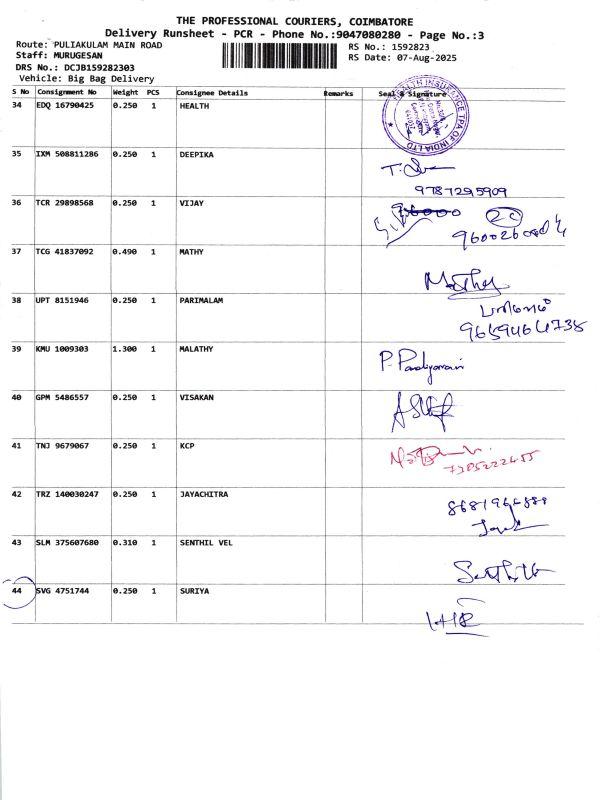 THE PROFESSIONAL COURIERS, COIMBATORE
Delivery Runsheet - PCR - Phone No.:9047080280 - Page No.:3
Route: PULIAKULAM MAIN ROAD RS No.: 1592823
Staff: MURUGESAN RS Date: 07-Aug-2025
DRS No.: DCJB159282303
Vehicle: Big Bag Delivery
S No Consignment No Weight PCS Consignee Details Remarks Seal & Signature
34 EDQ 16790425 0.250 1 HEALTH
HEALTH INSURANCE TPA OF INDIA LTD
35 IXM 508811286 0.250 1 DEEPIKA
9787295909
36 TCR 29898568 0.250 1 VIJAY
37 TCG 41837092 0.490 1 MATHY
Mathy
38 UPT 8151946 0.250 1 PARIMALAM
39 KMU 1009303 1.300 1 MALATHY
40 GPM 5486557 0.250 1 VISAKAN
41 TNJ 9679067 0.250 1 KCP
42 TRZ 140030247 0.250 1 JAYACHITRA
43 SLM 375607680 0.310 1 SENTHIL VEL
44 SVG 4751744 0.250 1 SURIYA